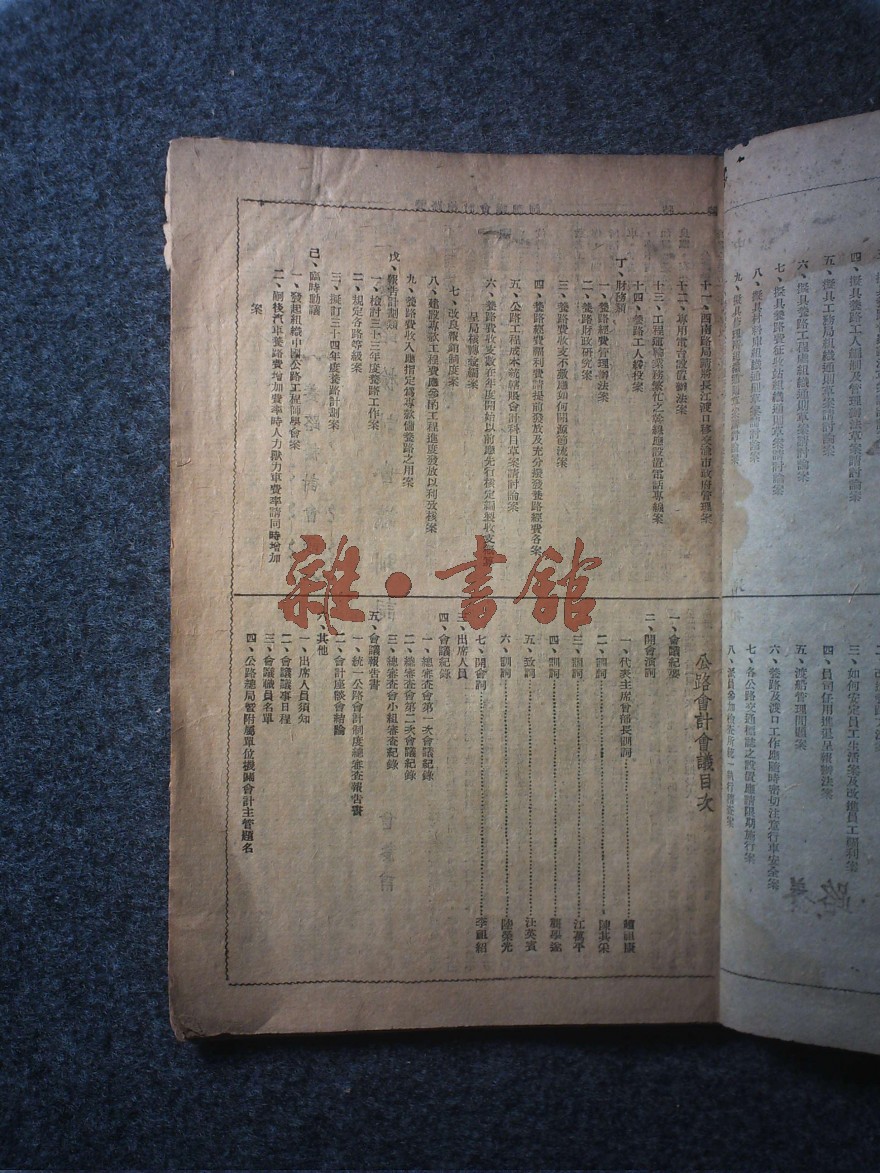 四、擬具養路工人編制及管理辦法草案請討論案
五、擬具工務局組織通則草案請討論案
六、擬具養路工程處組織通則草案請討論案
七、擬具養路費征收站組織通則草案請討論案
八、擬具材料庫組織通則草案請討論案
三、如何安定員工生活案及改進員工福利案
四、員司任用進退呈報辦法案
五、渡船管理問題案
六、養路及渡口工作應隨時密切注意行車安全案
七、各公路交通標誌之設置應請限期施行案
十一、西南路局請將長江渡口移交渝市政府管理案
十二、專用電台設置辦法案
十三、工程運輸業務繁忙之幹線應設置電話專線案
十四、養路工人勝役案
丁、財務類
一、養路經費管理辦法案
二、養路財政研究案
三、養路費收支不敷應如何開源節流案
四、養路經費福利費請提前發放及充分撥發養路經費各案
五、公路工程成本統轄賬會計科目草案請討論案
六、養路費收支數在年度開始以前應先行核定編製收支
呈局核轉彙編案
七、改良報銷制度案
八、建設專款工程費應參酌工程進度發放以利攷核案
九、養路費收入應指定為專款備養路之用案
戊、報告計劃類
一、檢討三十三年度養路工作案
二、規定各路等級案
三、擬訂三十四年度養路計劃案
己、臨時動議
一、發起組織中國公路工程師學會案
二、嗣後汽車養路費增加費率時人力獸力車費率請同時增加
案
公路會計會議目次
一、會議紀要
二、開會演詞
一、代表主席曾部長訓詞 趙祖康
二、訓詞 陳其采
三、訓詞 江萬平
四、訓詞
五、致詞 汪英賓
六、訓詞 陸榮光
七、開會詞 李祖紹
三、出席人員
四、會議紀錄
一、總審查會第一次會議紀錄
二、總審查會第二次會議紀錄
三、總審查會小組審查紀錄
五、會議報告書
一、統一公路會計制度總審查報告書
二、會計座談會結論
六、其他
一、出席人員須知
二、會議議事日程
三、會議職員名單
四、公路總局暨附屬單位機關會計主管題名
雜·書舘